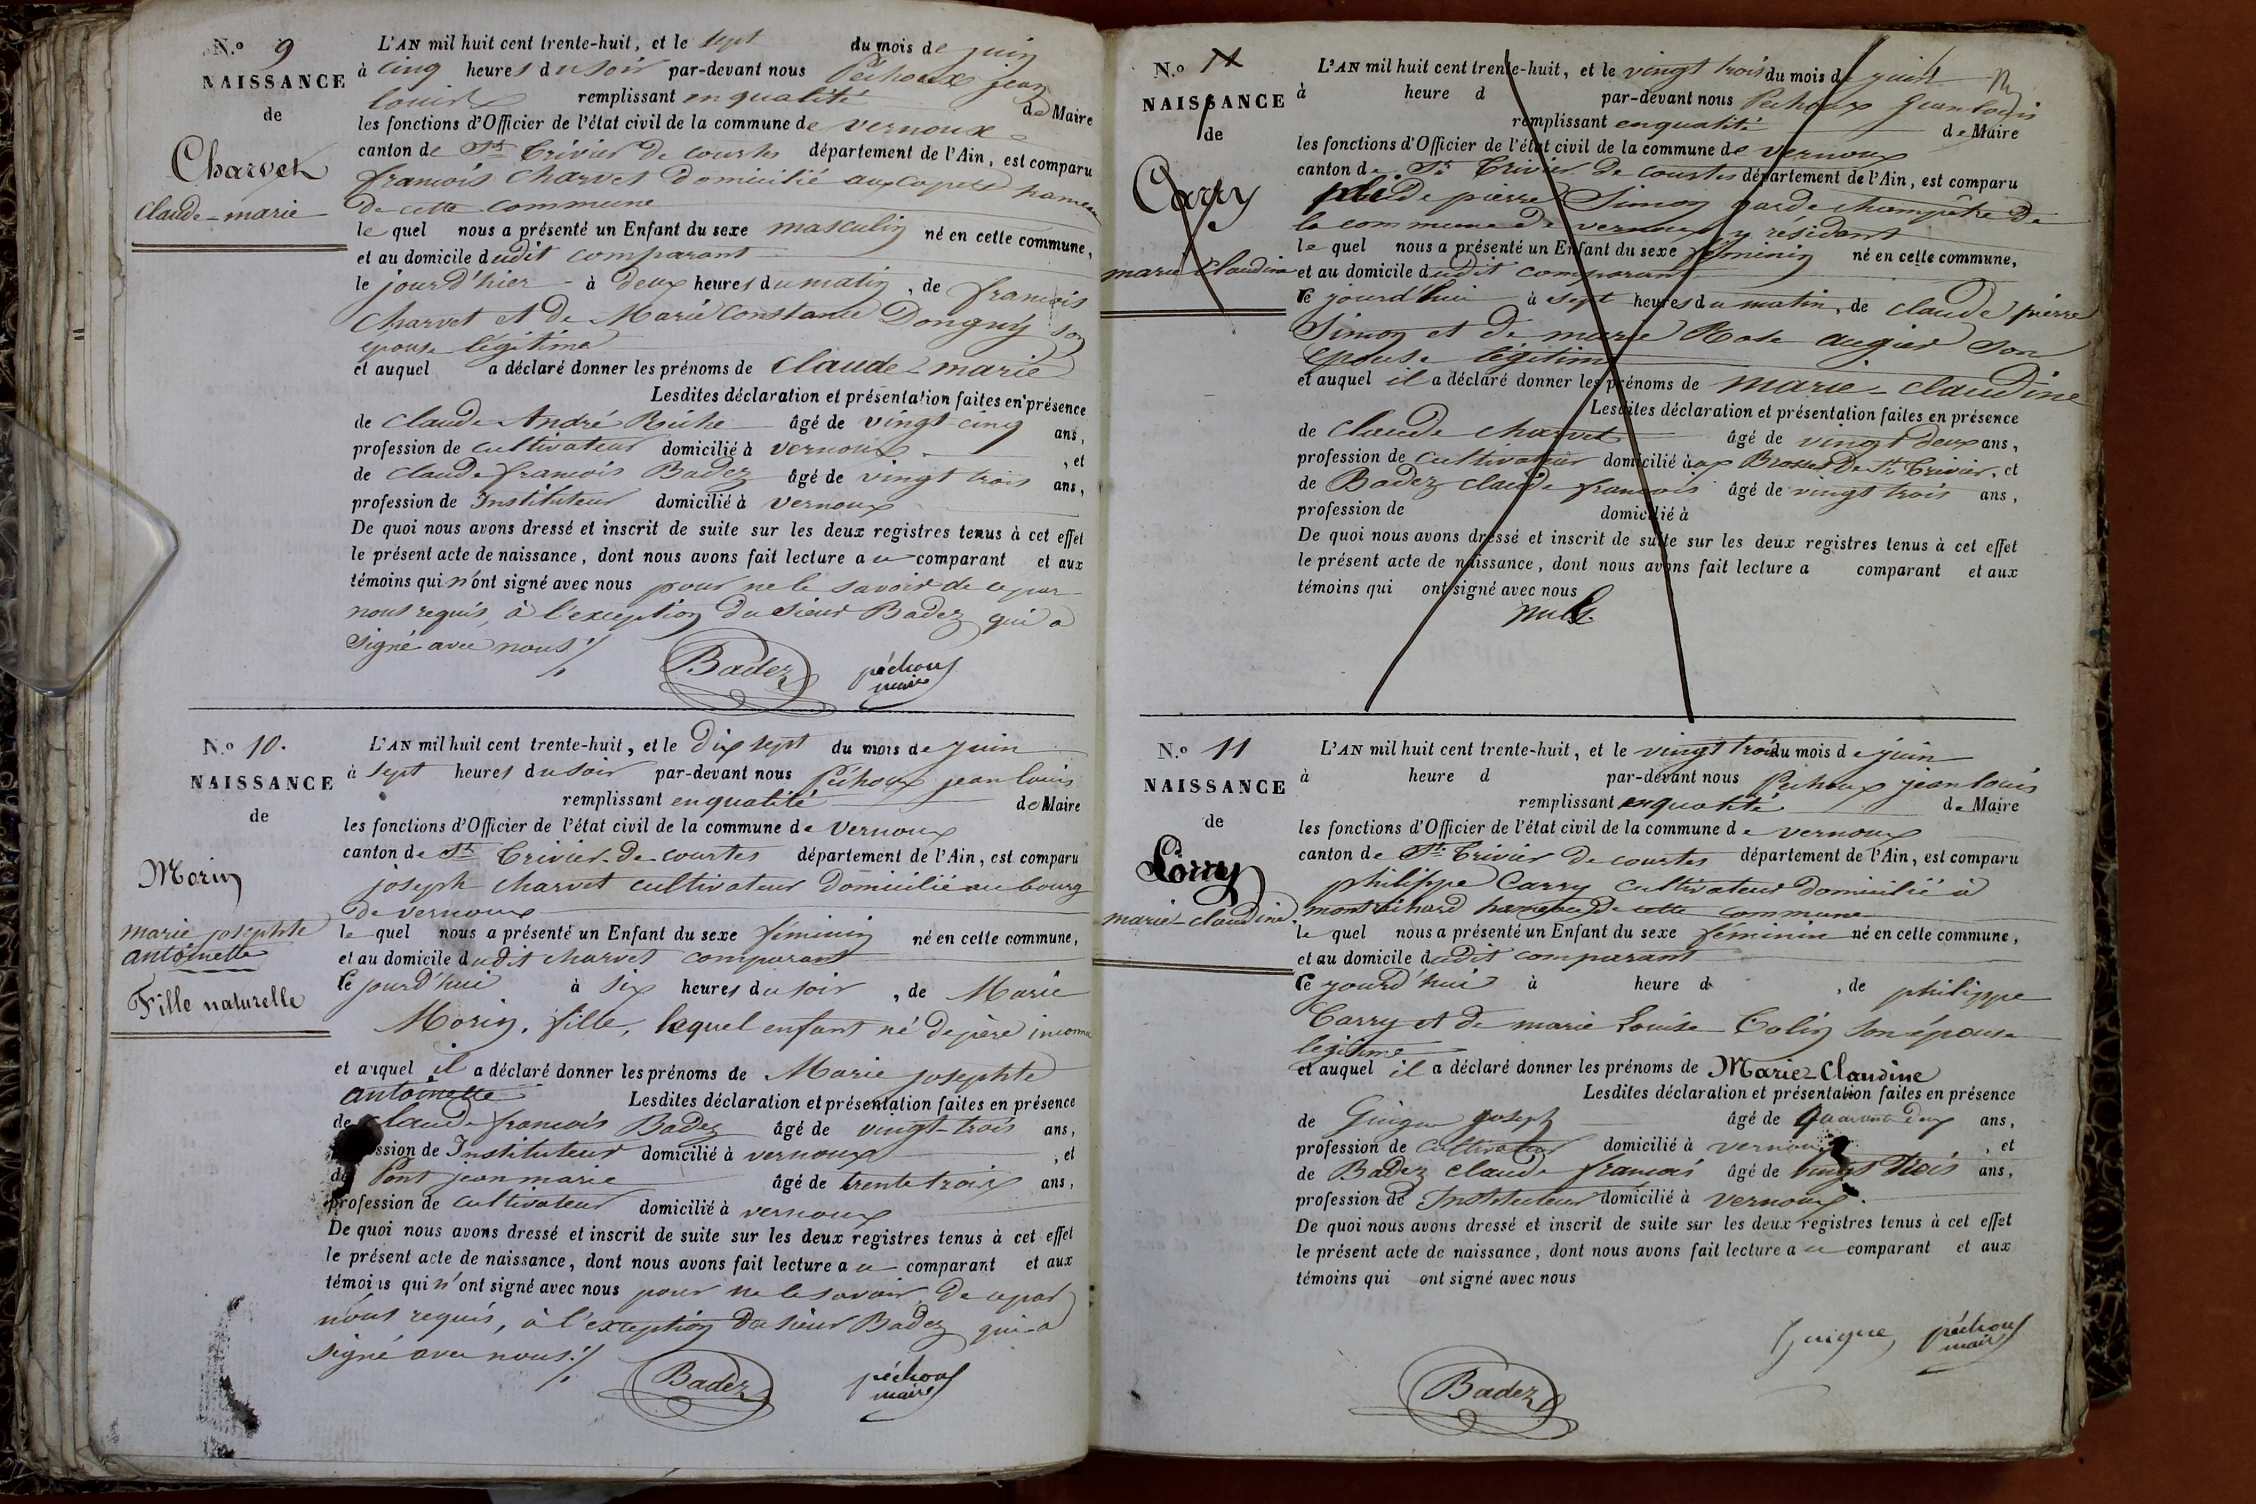 N.o 9
NAISSANCE
de
Charvet
claude-marie
L'AN mil huit cent trente-huit, et le sept du mois de juin
à cinq heures du soir par-devant nous Péchoux jean
louis remplissant en qualité de Maire
les fonctions d'Officier de l'état civil de la commune de vernoux
canton de St Trivier de courtes département de l'Ain, est comparu
francois charvet domicilié aux hameau
de cette commune
le quel nous a présenté un Enfant du sexe masculin né en cette commune,
et au domicile dudit comparant
le jour d'hier à deux heures du matin, de francois
charvet et de Marie Constance Donguy son
epouse légitime
et auquel a déclaré donner les prénoms de claude-marie
Lesdites déclaration et présentation faites en présence
de claude André âgé de vingt-cinq ans,
profession de cultivateur domicilié à vernoux, et
de claude francois Badez âgé de vingt trois ans,
profession de Instituteur domicilié à vernoux
De quoi nous avons dressé et inscrit de suite sur les deux registres tenus à cet effet
le présent acte de naissance, dont nous avons fait lecture au comparant et aux
témoins qui n'ont signé avec nous pour ne le savoir de ce par
nous requis, à l'exception du sieur Badez qui a
signé avec nous ./.
Badez péchoux
maire
N.o 10.
NAISSANCE
de
Morin
marie josephte
antoinette
Fille naturelle
L'AN mil huit cent trente-huit, et le dix sept du mois de juin
à sept heures du soir par-devant nous Péchoux jean louis
remplissant en qualité de Maire
les fonctions d'Officier de l'état civil de la commune de vernoux
canton de St Trivier-de-courtes département de l'Ain, est comparu
joseph charvet cultivateur domicilié au bourg
de vernoux
le quel nous a présenté un Enfant du sexe féminin né en cette commune,
et au domicile dudit charvet comparant
ce jourd'hui à six heures du soir, de Marie
Morin, fille, lequel enfant né de père inconnu
et auquel il a déclaré donner les prénoms de Marie josephte
antoinette Lesdites déclaration et présentation faites en présence
de claude francois Badez âgé de vingt-trois ans,
profession de Instituteur domicilié à vernoux, et
de Pont jean marie âgé de trente trois ans,
profession de cultivateur domicilié à vernoux
De quoi nous avons dressé et inscrit de suite sur les deux registres tenus à cet effet
le présent acte de naissance, dont nous avons fait lecture au comparant et aux
témoins qui n'ont signé avec nous pour ne le savoir de ce par
nous requis, à l'exception du sieur Badez qui a
signé avec nous ./.
Badez péchoux
maire
N.o 11
NAISSANCE
de
Carry
marie claudine
L'AN mil huit cent trente-huit, et le vingt trois du mois de juin
à heure d par-devant nous Péchoux jean louis
remplissant en qualité de Maire
les fonctions d'Officier de l'état civil de la commune de vernoux
canton de St Trivier de courtes département de l'Ain, est comparu
claude pierre Simon garde champêtre de
la commune de vernoux y résidant
le quel nous a présenté un Enfant du sexe féminin né en cette commune,
et au domicile dudit comparant
ce jourd'hui à sept heures du matin, de claude pierre
Simon et de marie Rose augier son
Epouse légitime
et auquel il a déclaré donner les prénoms de marie-claudine
Lesdites déclaration et présentation faites en présence
de claude charvet âgé de vingt deux ans,
profession de cultivateur domicilié aux Brosses de St Trivier, et
de Badez claude francois âgé de vingt trois ans,
profession de domicilié à
De quoi nous avons dressé et inscrit de suite sur les deux registres tenus à cet effet
le présent acte de naissance, dont nous avons fait lecture a comparant et aux
témoins qui ont signé avec nous
nul.
N.o 11
NAISSANCE
de
Carry
marie-claudine.
L'AN mil huit cent trente-huit, et le vingt trois du mois de juin
à heure d par-devant nous Péchoux jean louis
remplissant en qualité de Maire
les fonctions d'Officier de l'état civil de la commune de vernoux
canton de St Trivier de courtes département de l'Ain, est comparu
philippe Carry cultivateur domicilié à
hameau de cette commune
le quel nous a présenté un Enfant du sexe féminin né en cette commune,
et au domicile dudit comparant
ce jourd'hui à heure d, de philippe
Carry et de marie Louise Colin son épouse
légitime
et auquel il a déclaré donner les prénoms de Marie-Claudine
Lesdites déclaration et présentation faites en présence
de Guigue joseph âgé de quarante deux ans,
profession de cultivateur domicilié à vernoux, et
de Badez claude francois âgé de vingt trois ans,
profession de Instituteur domicilié à vernoux.
De quoi nous avons dressé et inscrit de suite sur les deux registres tenus à cet effet
le présent acte de naissance, dont nous avons fait lecture au comparant et aux
témoins qui ont signé avec nous
Guigue péchoux
maire
Badez